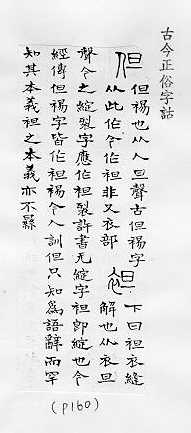 古今正俗字詁
但 但裼也从人旦聲古但裼字
从此作今作袒非又衣部
袒 下曰袒衣縫
解也从衣旦
聲今之綻裂字應作袒裂許書无綻字袒即綻也今
經傳但裼字皆作袒裼今人訓但只知為語辭而罕
知其本義袒之本義亦不
(P160)